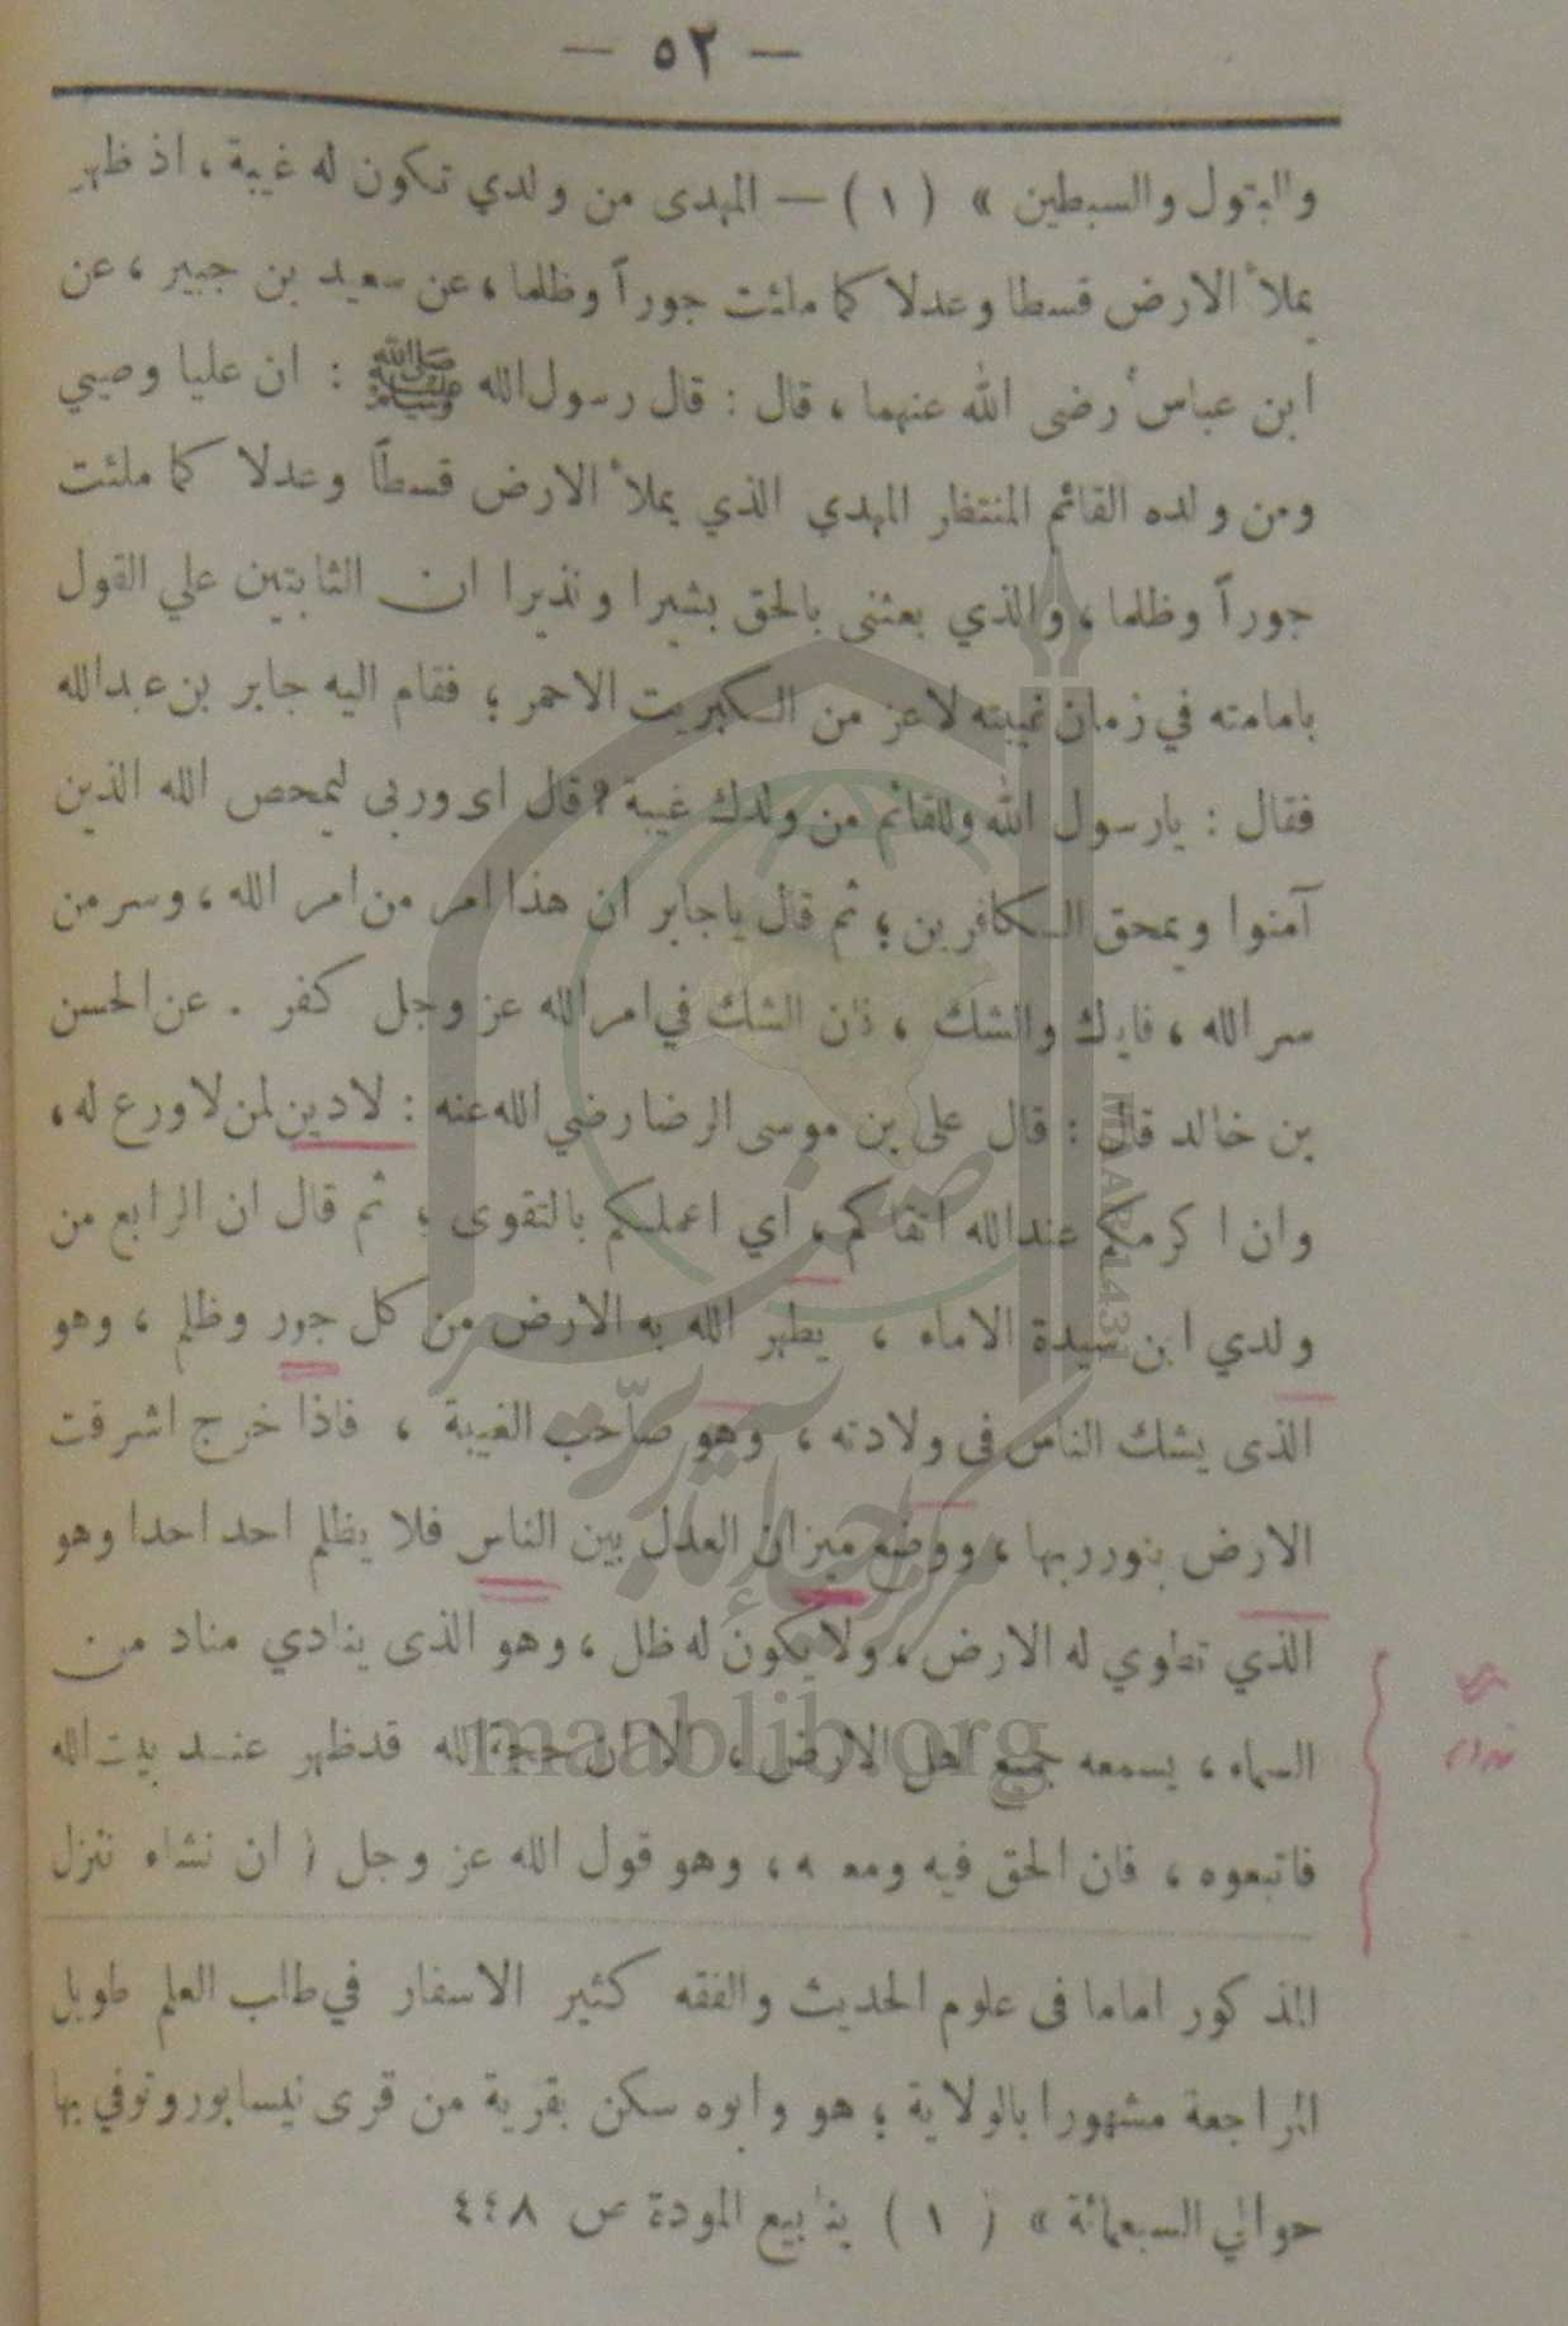 — ٥٢ —
والبتول والسبطين » ( ١ ) — المهدى من ولدي تكون له غيبة ، اذ ظهر
يملأ الارض قسطا وعدلا كما ملئت جوراً وظلما ، عن سعيد بن جبير ، عن
ابن عباس رضى الله عنهما ، قال : قال رسول الله ﷺ : ان عليا وصيي
ومن ولده القائم المنتظر المهدي الذي يملأ الارض قسطاً وعدلا كما ملئت
جوراً وظلما ، والذي بعثنى بالحق بشيرا ونذيرا ان الثابتين علي القول
بامامته في زمان غيبته لاعز من الكبريت الاحمر ؛ فقام اليه جابر بن عبدالله
فقال : يارسول الله وللقائم من ولدك غيبة ؟ قال اى وربى ليمحص الله الذين
آمنوا ويمحق الكافرين ؛ ثم قال ياجابر ان هذا امر من امر الله ، وسر من
سر الله ، فاياك والشك ، فان الشك في امر الله عز وجل كفر . عن الحسن
بن خالد قال : قال على بن موسى الرضا رضي الله عنه : لادين لمن لاورع له ،
وان اكرمكم عندالله اتقاكم ، اي اعملكم بالتقوى ؛ ثم قال ان الرابع من
ولدي ابن سيدة الاماء ، يطهر الله به الارض من كل جور وظلم ، وهو
الذى يشك الناس فى ولادته ، وهو صاحب الغيبة ، فاذا خرج اشرقت
الارض بنور ربها ، ووضع ميزان العدل بين الناس فلا يظلم احد احدا وهو
الذي تطوي له الارض ، ولا يكون له ظل ، وهو الذى ينادي مناد من
السماء ، يسمعه جميع اهل الارض ، الا ان حجة الله قدظهر عند بيت الله
فاتبعوه ، فان الحق فيه ومعه ، وهو قول الله عز وجل ( ان نشاء ننزل
المذكور اماما فى علوم الحديث والفقه كثير الاسفار في طلب العلم طويل
المراجعة مشهورا بالولاية ؛ هو وابوه سكن بقرية من قرى نيسابور وتوفي بها
حوالي السبعمائة » ( ١ ) ينابيع المودة ص ٤٤٨
maablib.org